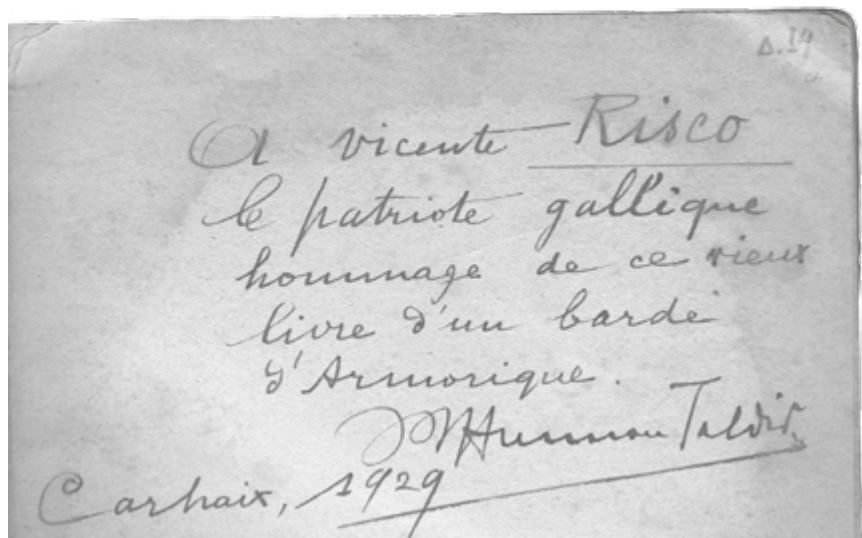 Δ.14
A vicente Risco
le patriote gallique
hommage de ce vieux
livre d'un barde
d'Armorique.
Taldir
Carhaix, 1929